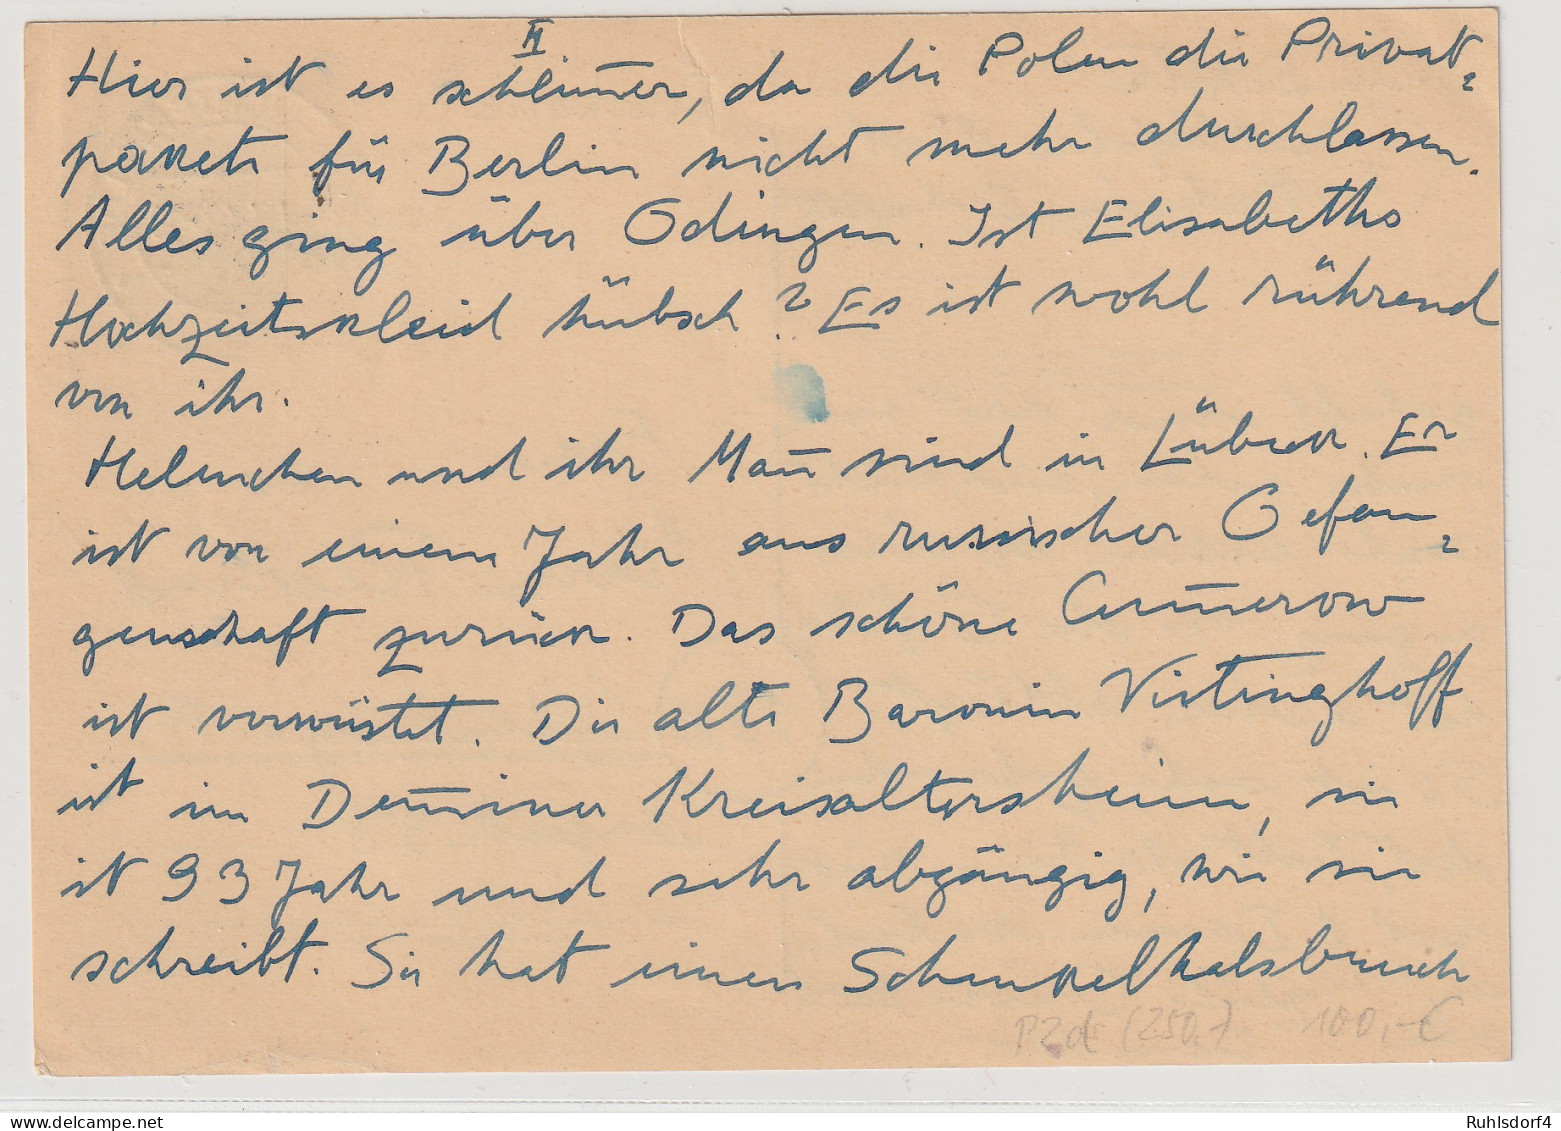 II
Hier ist es schlim̅er, da die Polen die Privat=
pakete für Berlin nicht mehr durchlassen.
Alles ging über Ödingen. Ist Elisabeths
Hochzeitskleid hübsch? Es ist wohl rührend
von ihr.
Helmchen und ihr Man̅ sind in Lübeck. Er
ist vor einem Jahr aus russischer Gefan=
genschaft zurück. Das schöne Cum̅erow
ist verwüstet. Die alte Baronin Vietinghoff
ist im Dem̅iner Kreisaltersheim, sie
ist 93 Jahr und sehr abgängig, wie sie
schreibt. Sie hat einen Schenkelhalsbruch
P2dc (250,-) 100,-€
www.delcampe.net
Ruhlsdorf4